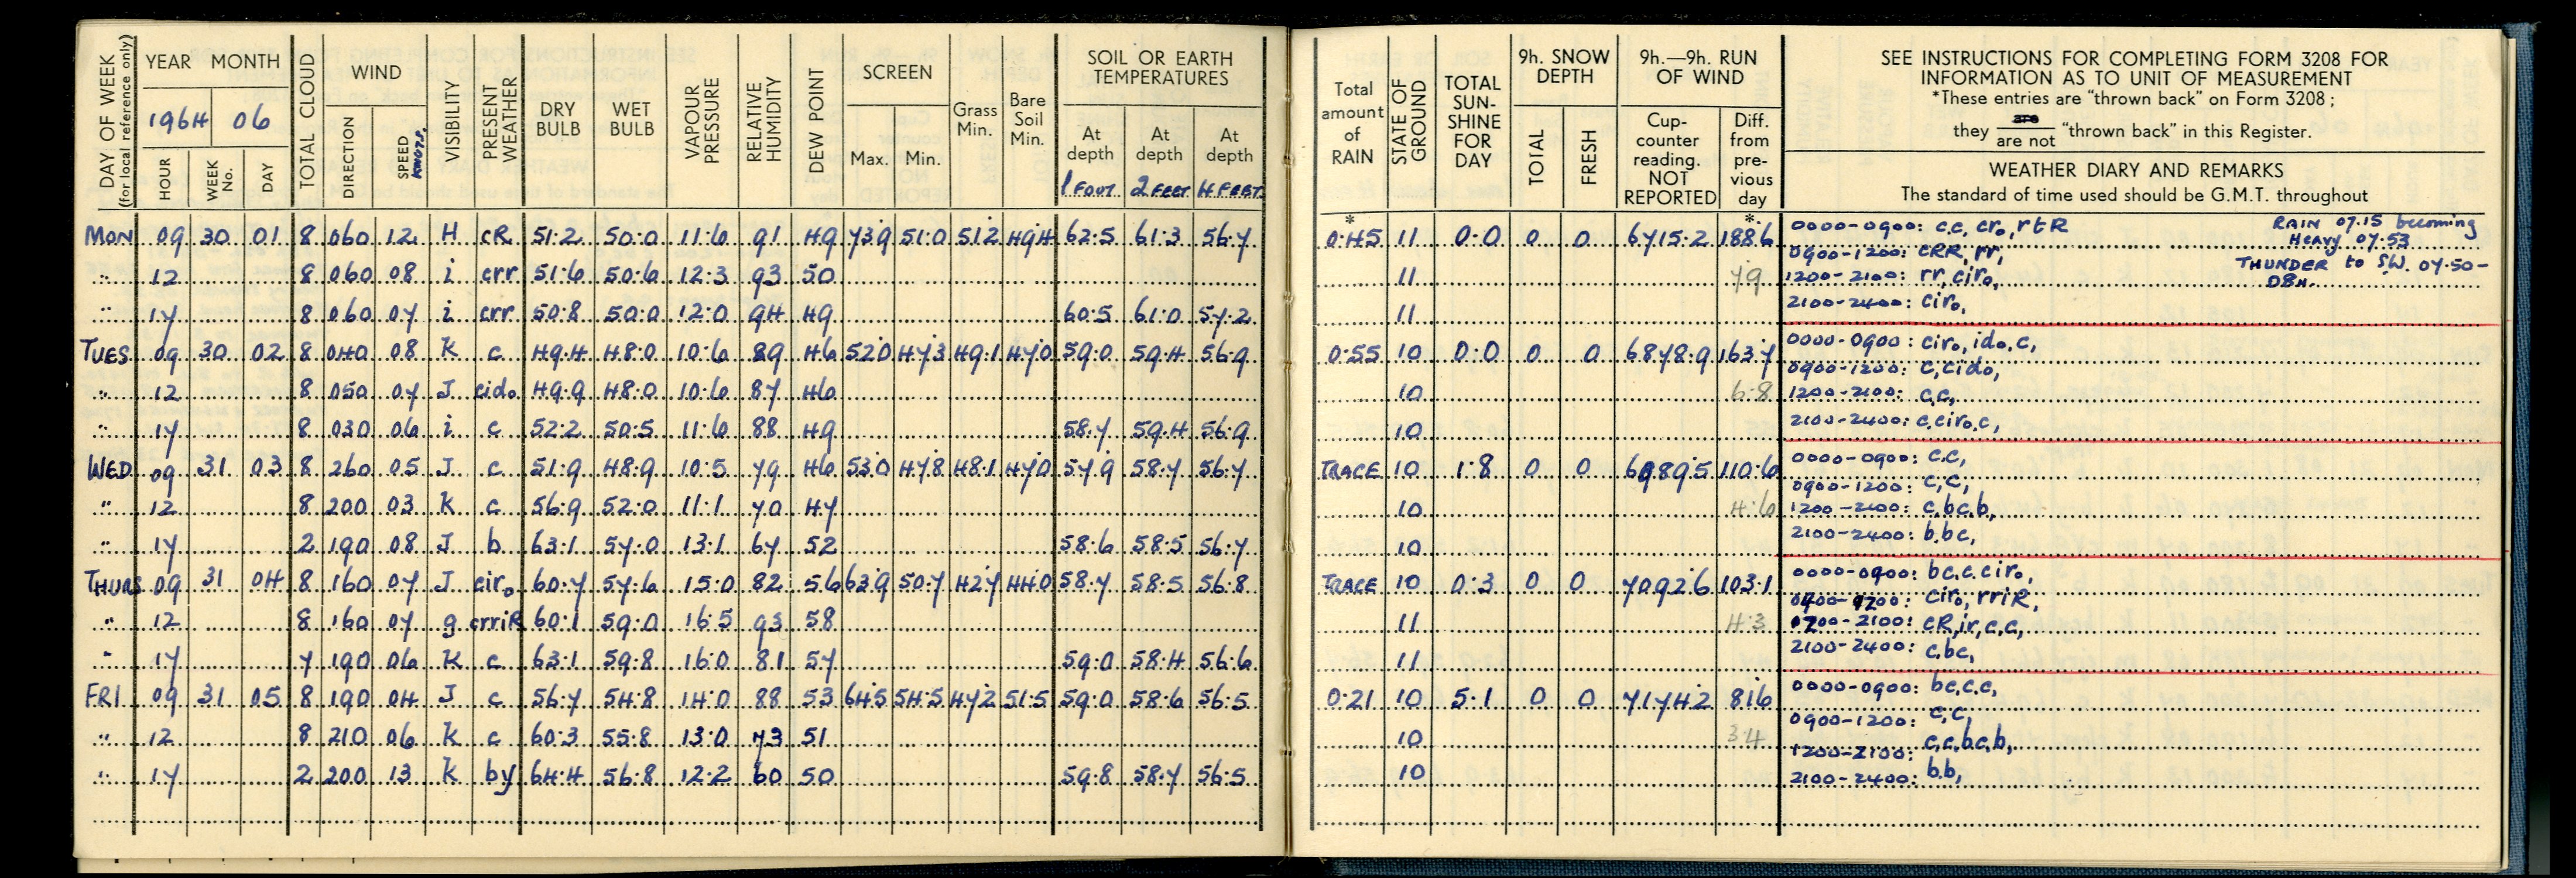 DAY OF WEEK (for local reference only)
YEAR MONTH
1964 06
HOUR WEEK No. DAY
TOTAL CLOUD
WIND
DIRECTION SPEED KNOTS.
VISIBILITY
PRESENT WEATHER
DRY BULB
WET BULB
VAPOUR PRESSURE
RELATIVE HUMIDITY
DEW POINT
SCREEN
Max. Min.
Grass Min.
Bare Soil Min.
SOIL OR EARTH TEMPERATURES
At depth 1 FOOT
At depth 2 FEET
At depth 4 FEET
MON 09 30 01 8 060 12 H cR 51.2 50.0 11.6 91 49 73.9 51.0 51.2 49.4 62.5 61.3 56.7
" 12 8 060 08 i crr 51.6 50.6 12.3 93 50
" 17 8 060 07 i crr 50.8 50.0 12.0 94 49 60.5 61.0 57.2
TUES 09 30 02 8 040 08 K c 49.4 48.0 10.6 89 46 52.0 47.3 49.1 47.0 59.0 59.4 56.9
" 12 8 050 07 J cido 49.9 48.0 10.6 87 46
" 17 8 030 06 i c 52.2 50.5 11.6 88 49 58.7 59.4 56.9
WED 09 31 03 8 260 05 J c 51.9 48.9 10.5 79 46 53.0 47.8 48.1 47.0 57.9 58.7 56.7
" 12 8 200 03 K c 56.9 52.0 11.1 70 47
" 17 2 190 08 J b 63.1 57.0 13.1 67 52 58.6 58.5 56.7
THURS 09 31 04 8 160 07 J ciro 60.7 57.6 15.0 82 56 63.9 50.7 42.7 44.0 58.7 58.5 56.8
" 12 8 160 07 g crriR 60.1 59.0 16.5 93 58
" 17 7 190 06 K c 63.1 59.8 16.0 81 57 59.0 58.4 56.6
FRI 09 31 05 8 190 04 J c 56.7 54.8 14.0 88 53 64.5 54.5 47.2 51.5 59.0 58.6 56.5
" 12 8 210 06 K c 60.3 55.8 13.0 73 51
" 17 2 200 13 K by 64.4 56.8 12.2 60 50 59.8 58.7 56.5
Total amount of RAIN
STATE OF GROUND
TOTAL SUN-SHINE FOR DAY
9h. SNOW DEPTH
TOTAL FRESH
9h.—9h. RUN OF WIND
Cup-counter reading. NOT REPORTED
Diff. from pre-vious day
SEE INSTRUCTIONS FOR COMPLETING FORM 3208 FOR
INFORMATION AS TO UNIT OF MEASUREMENT
*These entries are "thrown back" on Form 3208;
they are / are not "thrown back" in this Register.
WEATHER DIARY AND REMARKS
The standard of time used should be G.M.T. throughout
* *
0.45 11 0.0 0 0 6715.2 188.6 0000-0900: c.c, cro, rtR
RAIN 07.15 becoming
Heavy 07.53
0900-1200: cRR, rr,
THUNDER to SW. 07.50-
11 7.9 1200-2100: rr, ciro,
08
11 2100-2400: ciro,
0.55 10 0.0 0 0 6878.9 163.7 0000-0900: ciro, ido, c,
0900-1200: c, cido,
10 6.8 1200-2100: c,c,
10 2100-2400: c.ciro,c,
TRACE 10 1.8 0 0 6989.5 110.6 0000-0900: c.c,
0900-1200: c,c,
10 4.6 1200-2100: c,bc,b,
10 2100-2400: b.bc,
TRACE 10 0.3 0 0 7092.6 103.1 0000-0900: bc.c.ciro,
0900-1200: ciro, rriR,
11 4.3 1200-2100: cR,ir,c,c,
11 2100-2400: c.bc,
0.21 10 5.1 0 0 7174.2 81.6 0000-0900: bc,c.c,
0900-1200: c,c,
10 3.4 1200-2100: c,c.bc.b,
10 2100-2400: b.b,